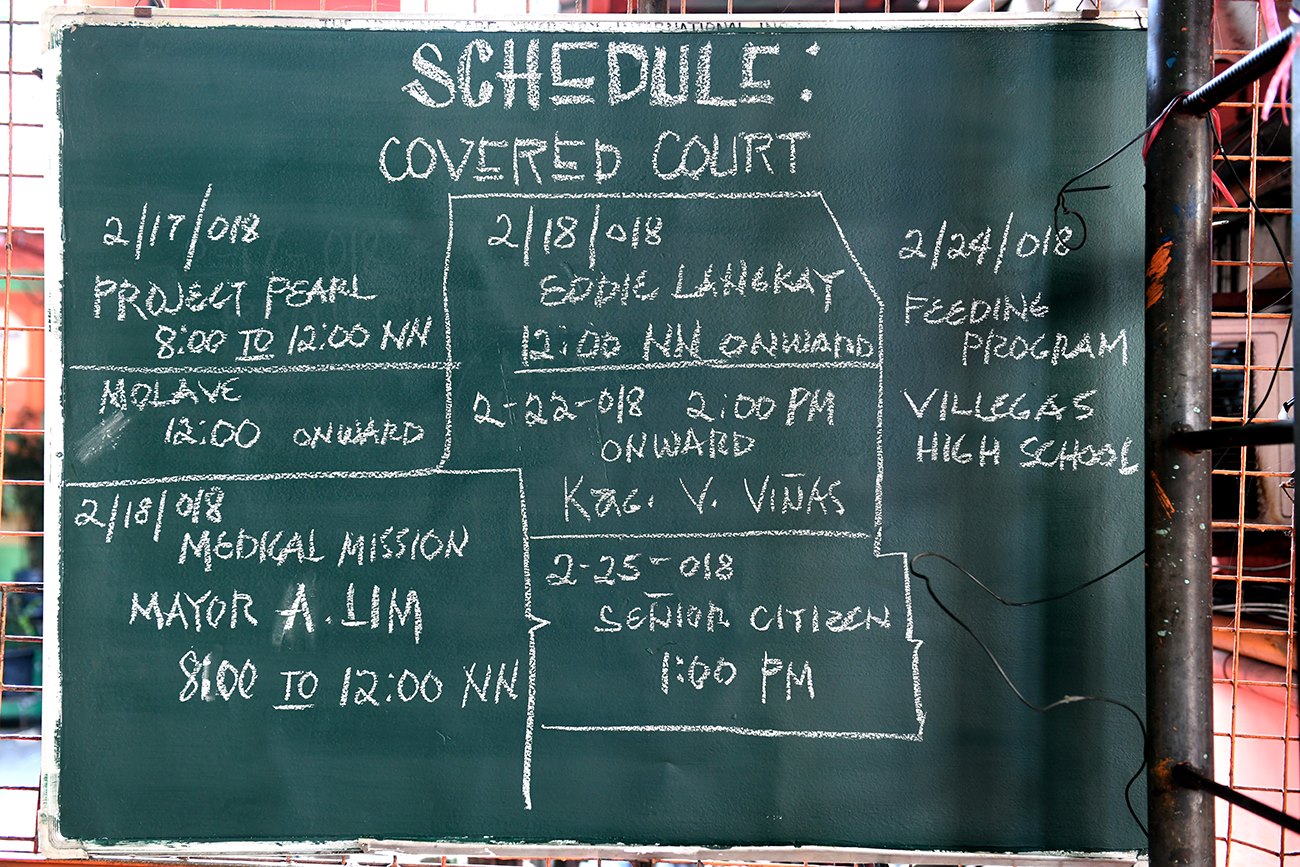 SCHEDULE:
COVERED COURT
2/17/018
PROJECT PEARL
8:00 TO 12:00 NN
MOLAVE
12:00 ONWARD
2/18/018
MEDICAL MISSION
MAYOR A. LIM
8:00 TO 12:00 NN
2/18/018
EDDIE LANGKAY
12:00 NN ONWARD
2-22-018 2:00 PM
ONWARD
KAG. V. VIÑAS
2-25-018
SEÑIOR CITIZEN
1:00 PM
2/24/018
FEEDING
PROGRAM
VILLEGAS
HIGH SCHOOL